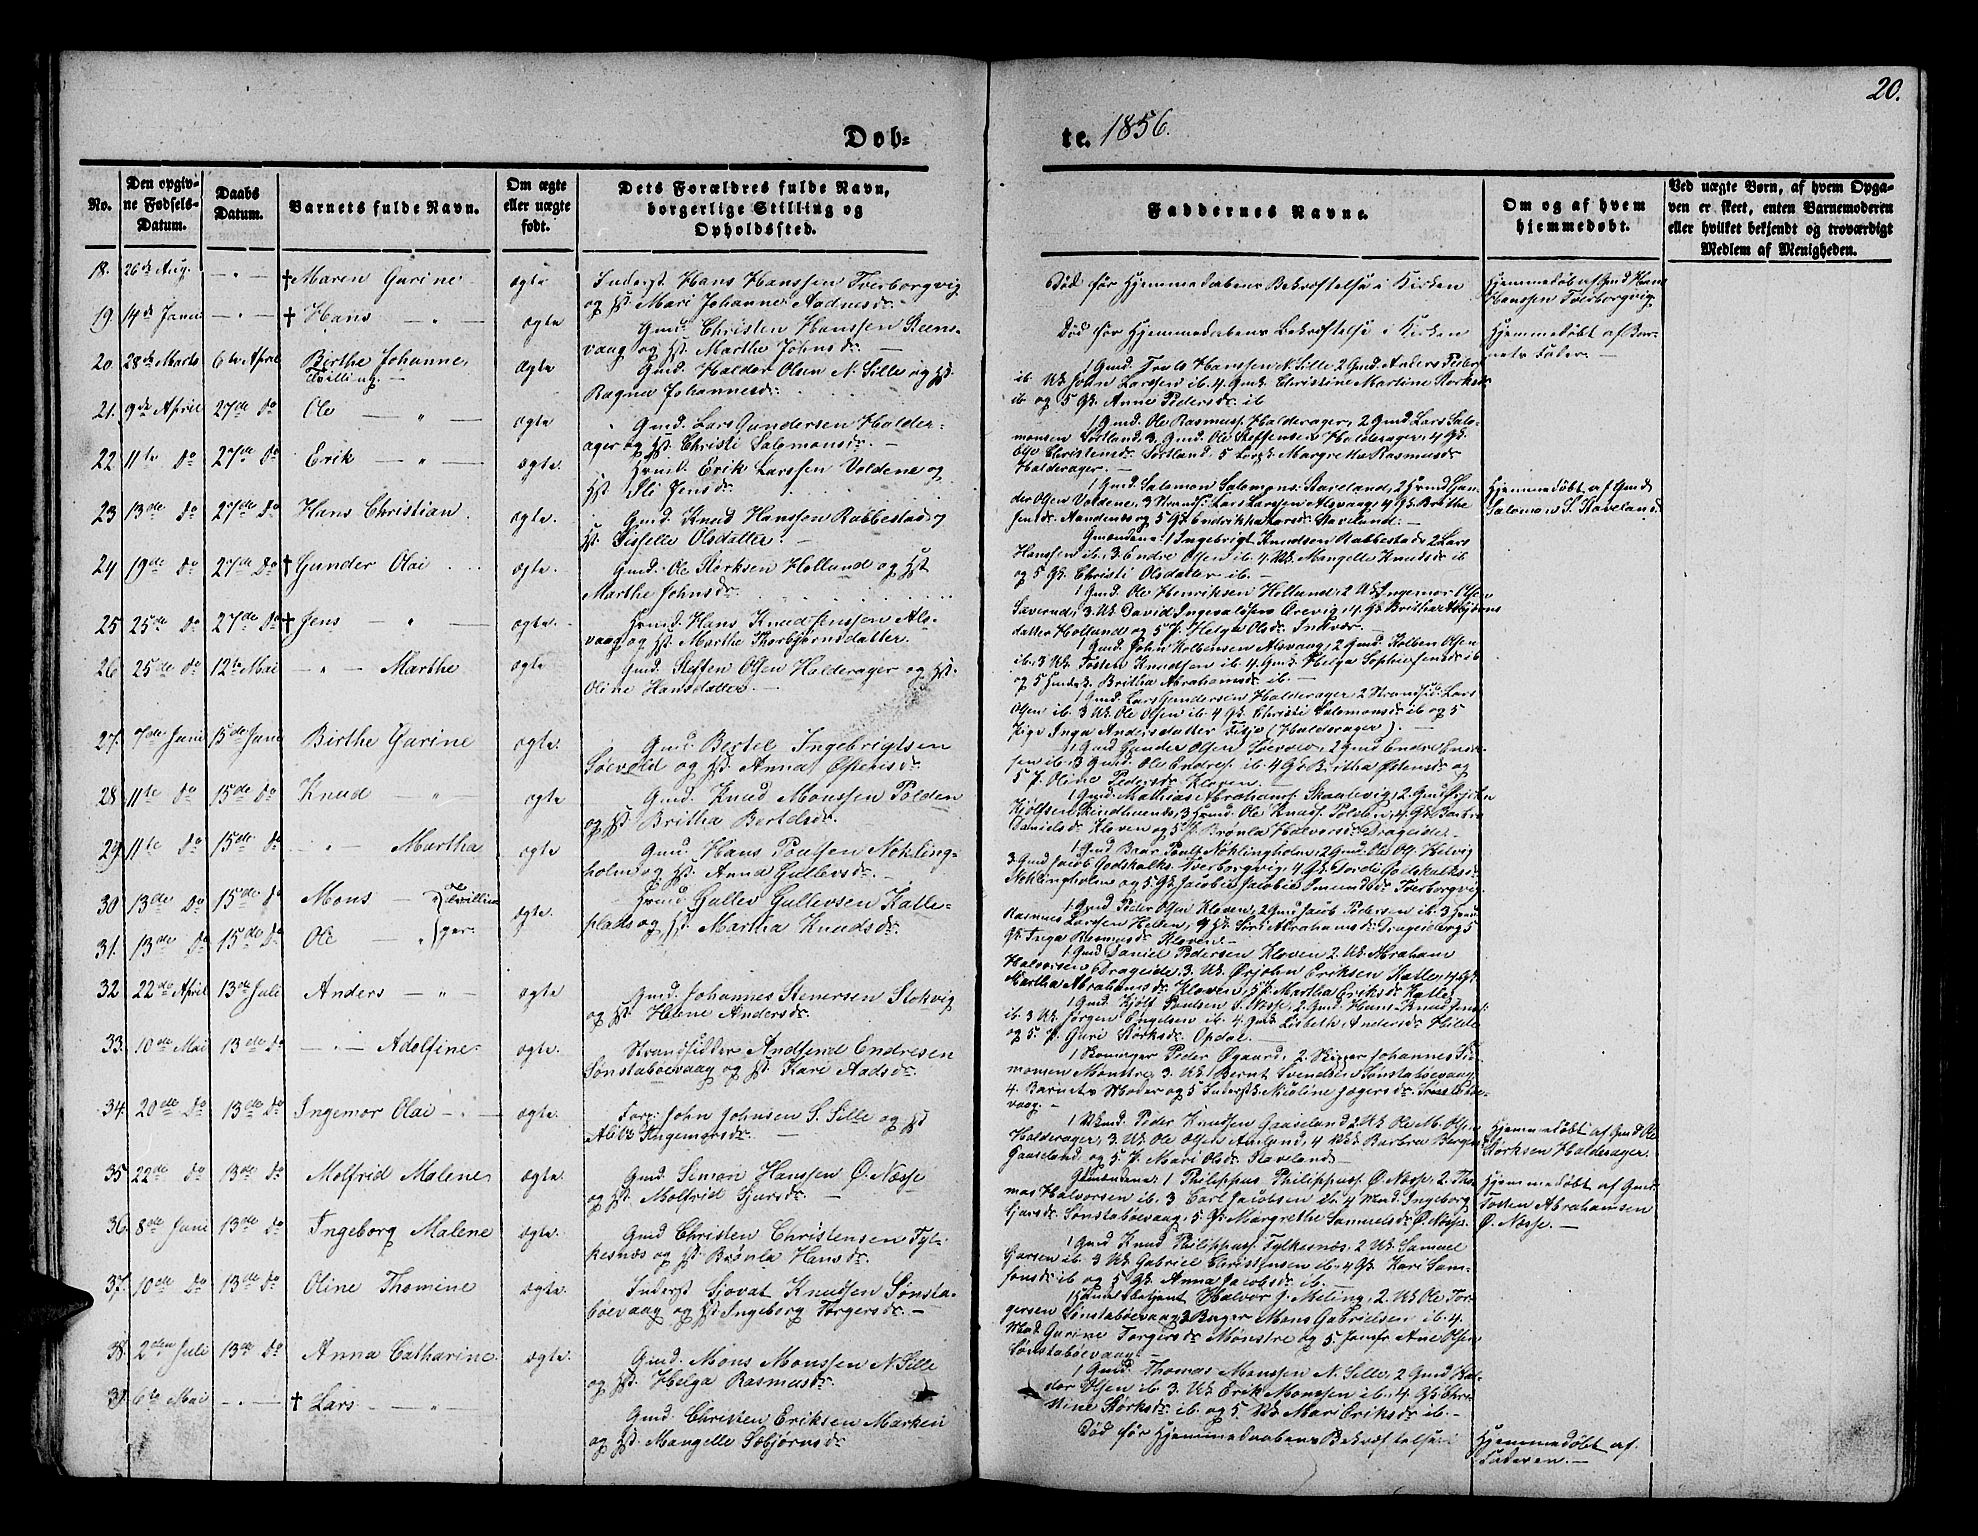 20.
Døb=
te. 1856.
No.
Den opgiv-
ne Fødsels-
Datum.
Daabs
Datum.
Barnets fulde Navn.
Om ægte
eller uægte
født.
Dets Forældres fulde Navn,
borgerlige Stilling og
Opholdssted.
Faddernes Navne.
Om og af hvem
hjemmedøbt.
Ved uægte Børn, af hvem Opga-
ven er skeet, enten Barnemoderen
eller hvilket bekjendt og troværdigt
Medlem af Menigheden.
18. 26de Aug. — " — † Maren Gurine ægte Inderst Hans Hanssen Tverborgvig
og Hst Mari Johanne Aadnesdr. —
Død før Hjemmedaabens Bekræftelse i Kirken
Hjemmedøbt af Gmd Hans
Hanssen Tverborgvig
19. 14de Janu — " — † Hans — " — ægte Gmd. Christen Hanssen Steens-
vaag og Hst. Martha Johnsdr. —
Død før Hjemmedaabens Bekræftelse i Kirken
Hjemmedøbt af Bar-
nets Fader. —
20. 28de Marts 6te April Birthe Johanne,
Tvilling. —
ægte Gmd. Haldor Olsen N. Sille og Hst.
Ragna Johannesdr.
1 Gmd. Truls Hanssen N. Sille 2 Gmd Anders Peders
ib. Uk John Larssen ib. 4. Gmk Christine Martine Størksdr
ib og 5 Gk. Anne Pedersdr ib
21. 9de April 27de Do Ole — " — ægte Gmd. Lars Gundersen Halder-
ager og Hst. Christi Salomonsdr. —
1 Gmd. Ole Rasmuss. Halderager, 2 Gmd Lars Salo-
monsen Sortland, 3. Gmd. Ole Steffensen Halderager, 4 Gk.
Christensdr. Sortland, 5 Margretha Rasmusdr
Halderager. —
22 11te Do 27de Do Erik — " — ægte. Hrmd. Erik Larssen Voldene og
Hst Sli Jensdr.
1 Gmd. Salomon Salomons. Staveland, 2 Hrmd Gun-
der Olsen Voldene, 3 Strands. Lars Larssen Alsvaag, 4 Gk. Brithe
Jensdr. Aandenes og 5 Gk. Endrikka Larsdr. Staveland. —
Hjemmedøbt af Gmd
Salomon S. Staveland.
23 13de Do 27de Do Hans Christian ægte. Gmd. Knud Hanssen Rabbestad og
Hst. Sisselle Olsdatter. —
Gmændene 1 Ingebrigt Knudsen Rabbestad 2 Lars
Hanssen ib, 3. Endre Olsen ib. 4. Uk. Mangelle Knudsdr ib
og 5 Gk. Christi Olsdatter ib. —
24 19de Do 27de Do † Gunder Olai ægte. Gmd. Ole Størksen Holland og Hst
Marthe Johnsdr.
1 Gmd. Ole Henriksen Holland, 2 Uk Ingemor Olsen
Saverud, 3. Uk David Ingvaldsen Orevig, 4. Gk. Britha
datter Holland og 5 P. Helga Olsdr. Inkvær. —
25 25de Do 27de Do † Jens — " — ægte. Hrmd. Hans Knudssen Als-
vaag og Hst. Martha Thorbjørnsdatter.
1 Gmd. John Kolbensen Alsvaag, 2 Gmd. Kolben Olsen
ib. 3 Uk. Tosten Knudsen ib. 4. Gmk. Helga Sophie Jensdr ib
og 5 Britha Abrahamsdr ib. —
26 25de Do 12te Mai — " — Marthe ægte Gmd. Steffen Olsen Halderager og Hst.
Oline Hansdatter —
1 Gmd. Lars Gundersen Halderager, 2 Strandsid. Lars
Olsen ib. 3 Uk Ole Olsen ib. 4 Gk. Christi Salomonsdr ib og 5
Pige Inga Andersdatter Fitjo (Halderager). —
27. 7de Juni 15de Juni Birthe Gurine ægte. Gmd. Bertel Ingebrigtsen
Søevold og Hst. Anna Østensdr.
1 Gmd Gunder Olsen 2 Gmd Endre
sen ib. 3 Gmd. Ole Endres. ib. 4 Gk Britha Østensdr og
5 P. Oline Pedersdr. Kloven. —
28. 11te Do 15de Do Knud — " — ægte Gmd. Knud Monssen Polden
og Hst. Britha Bertelsdr. —
1 Gmd. Mathias Abrahams. Skaalevig, 2. Gmd
3 Hrmd. Ole Knuds. Polden, 4 Gk. Barbro
Danielsdr. Kloven og 5 P. Brønla Halvorsdr. Drageide. —
29. 11te Do 15de Do — " — Martha ægte Gmd. Hans Poulsen Nøkling-
holm og Hst. Anna Gullevsdr. —
1 Gmd Baar Pouls. Nøklingholm, 2 Gmd. Ole Ols. Helvig
3 Gmd Jacob Godskalks. Tverborgvig, 4 Gk. Tordi Godskalksdr.
Nøklingholm og 5. Gk Jacobia Tverborgvig
30 13de Do 15de Do Mons — Tvillin-
31. 13de Do 15de Do Ole — " ger.
ægte. Hrmd Gullev Gullevsen Katle-
plads og Hst Martha Knudsdr.
1 Gmd. Peder Olsen Kloven, 2 Gmd Jacob Pedersen ib. 3 Hrmd
Rasmus Larssen Helen, 4 Gk. Siri Abrahamsdr. Drageide og 5
Gk. Inga Rasmusdr. Kloven. —
1 Gmd Daniel Pedersen Kloven 2. Uk. Abraham
Halvorsen Drageide, 3. Uk. Ørjohn Eriksen Katle, 4 Gk.
Martha Abrahamsdr. Kloven, 5 P. Martha Eriksdr. Katle.
32. 22de April 13de Juli Anders — " — ægte Gmd. Johannes Stenersen Stokvig
og Hst. Helene Andersdr.
1 Gmd. Kjøll Poulsen S. Næsse, 2. Gmd. Hans Knuds Jens.
ib. 3 Uk. Jørgen Engelsen ib. 4. Gmk Lisbeth Andersdr Hilde
og 5. P. Guri Størksdr. Opdal. —
33. 10de Mai 13de Do — " — Adolfine ægte. Strandsidder Andfind Endresen
Sønstabøevaag og Hst. Kari Aadsdr.
1 Skoninger Peder Øgaard, 2. Skipper Johannes Si-
monsen Mønstre, 3. Uk. Bernt Svendsen Sønstabøevaag,
4. Barnets Moder og 5 Inderst Nicoline Jægersdr. Sønstabøe-
vaag. —
34. 20de Do 13de Do Ingemor Olai — " — ægte. Forp. John Johnsen S. Sille og Hst
Alida Ingemorsdr. —
1 Ukmd. Peder Knudsen Gaaseland 2 Uk Ole M. Olsen
Halderager, 3. Uk Ole Olsen Amland, 4 Uk Barbra Berges
Gaaseland, og 5. P. Mari Olsdr. Staveland. —
Hjemmedøbt af Gmd Ole
Størksen Halderager.
35. 22de Do 13de Do Molfrid Malene. ægte. Gmd. Simon Hanssen Ø. Næsse
og Hst. Molfrid Sjursdr.
Gmændene: 1 Philippus Philippuss. Ø. Næsse, 2. Tho-
mas Halvorsen ib. 3 Carl Jacobsen ib. 4 Mad. Ingeborg
Sjursdr. Sønstabøevaag, 5. P. Margrethe Samuelsdr. Ø. Næsse.
Hjemmedøbt af Gmd.
Totten Abrahamsen
Ø. Næsse. —
36. 8de Juni 13de Do Ingeborg Malene ægte. Gmd Christen Christensen Fyl-
kesnæs og Hst. Brønla Hansdr.
1 Gmd. Knud Philippuss. Fylkesnæs, 2 Uk. Samuel
ib. 3 Uk. Gabriel Christensen ib. 4 Gk. Kari Sam-
sonsdr. ib og 5 Gk. Anna Jacobsdr. ib. —
37. 10de Do 13de Do Oline Thomine ægte. Inderst Sjovat Knudsen Sønsta-
bøevaag og Hst Ingeborg Torgersdr. —
1 Halvor J. Meling, 2. Uk Ole Tor-
gersen Sønstabøevaag 3 Bager Mons Gabrielsen ib. 4.
Mad. Gurine Torgersdr. Mønstre og 5. Jomfr Ane Olsen
Sønstabøevaag. —
38. 2den Juli 13de Do Anna Catharine. ægte. Gmd. Mons Monssen N. Sille
og Hst. Helga Rasmusdr.
1 Gmd. Thomas Monssen N. Sille, 2 Gmd Hal-
dor Olsen ib. 3. Uk Erik Monssen ib. 4. Gk. Chri-
stine Størksdr. ib. og 5. Uk Mari Eriksdr ib. —
39. 6te Mai — " — † Lars — " — Gmd. Christen Eriksen Marken
og Hst. Mangelle Sæbjørnsdr.
Død før Hjemmedaabens Bekræftelse.
Hjemmedøbt af
Faderen. —